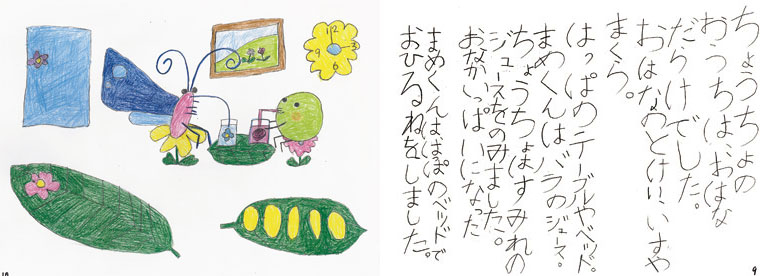 ちょうちょの
おうちはおはな
だらけでした。
おはなのとけいにいすや
まくら。
はっぱのテーブルやベッド。
まめくんはバラのジュース。
ちょうちょはすみれの
ジュースをのみました。
おなかいっぱいになった
まめくんははっぱのベッドで
おひるねをしました。
9
12
3
6
9
10